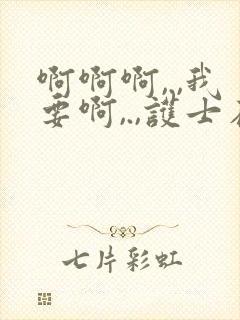 啊啊啊,,,我
要啊,,,護士
七片彩虹